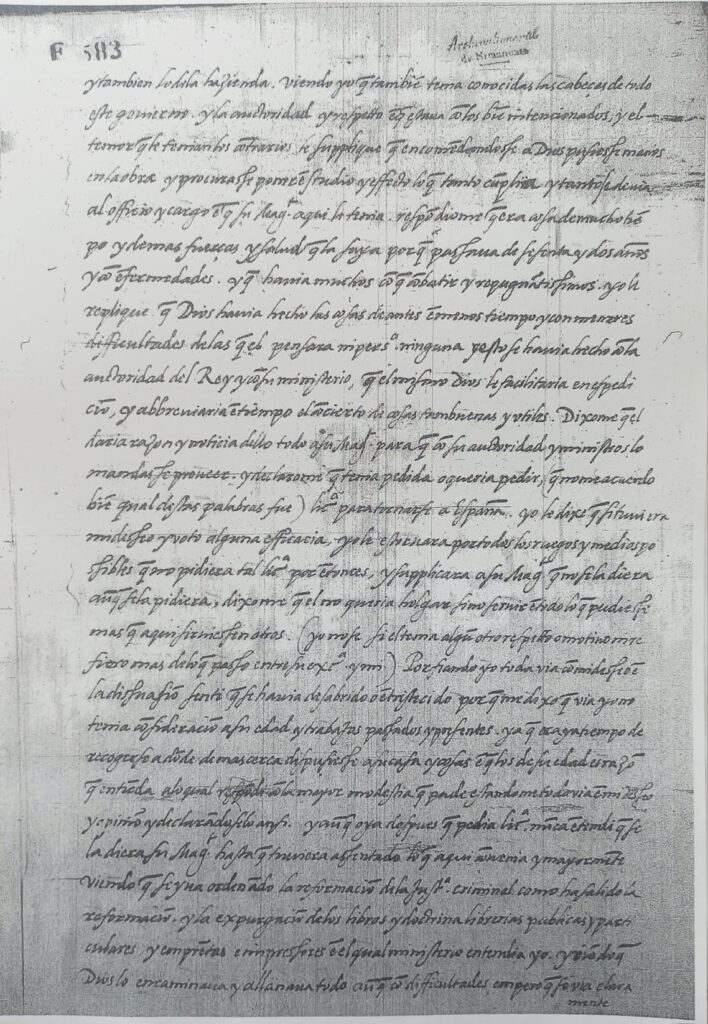 E 583
Archivo General
de Simancas
y tambien lo dela hazienda. viendo yo q̃ tambiẽ tenia conocidas las cabeças de todo
este gouierno. y la auctoridad y respetto ẽ q̃ estaua cõ los biẽ intencionados, y el
temor q̃ le tenian los cõtrarios. le supplique q̃ encomẽdandosse a Dios pusiesse manos
en la obra y procurasse poner ẽ studio y effecto lo q̃ tanto cũplia y tanto se deuia
al officio y cargo ẽ q̃ su Mag.ᵈ aqui le tenia. respõdiome q̃ era cosa de mucho tiẽ
po y de mas fuerças y salud q̃ la suya porq̃ passaua de sesenta y dos años
y cõ ẽfermedades. y q̃ hauia muchos cõ q̃ cõbatir y repugnãtissimos. yo le
replique q̃ Dios hauia hecho las cosas de antes ẽ menos tiempo y con menores
difficultades de las q̃ el pensara ni pers.ᵃ ninguna y esto se hauia hecho cõ la
auctoridad del Rey y cõ su ministerio, q̃ el mismo Dios le facilitaria en espedi
ciõ, y abbreuiaria ẽ tiempo el cõcierto de cosas tan buenas y vtiles. Dixome q̃ el
daria razon y noticia dello todo a su Mag.ᵈ para q̃ cõ su auctoridad y ministros lo
mandasse proueer. y declarome q̃ tenia pedida o queria pedir, (q̃ no me acuerdo
biẽ qual destas palabras fue) lic.ᵃ para tornarse a España. yo le dixe q̃ si tuuiera
mi desseo y voto alguna efficacia, yo le estoruara por todos los ruegos y medios po
ssibles q̃ no pidiera tal lic.ᵃ por entonces, y supplicara a su Mag.ᵈ q̃ no se la diera
aunq̃ se la pidiera, dixome q̃ el no queria holgar sino seruir ẽ todo lo q̃ pudiesse
mas q̃ aqui siruiessen otros. (yo no se si el tenia algũ otro respetto o motiuo, me
fiero mas de lo q̃ passo entre su ex.ᶜⁱᵃ y mi) Porfiando yo toda via cõ mi desseo ẽ
la dissuasiõ senti q̃ se hauia desabrido o ẽtristecido porque me dixo q̃ via yo no
tenia cõsideraciõ a su edad y trabajos passados y presentes. ya q̃ era ya tiempo de
recogerse a dõde de mas cerca dispusiesse a su casa y cosas ẽ q̃ los de su edad es razõ
q̃ entiẽda. a lo qual respõdi cõ la mayor modestia q̃ pude estandome toda via ẽ mi desseo
y opiniõ y declarãdoselo ansi. y aunq̃ oya despues q̃ pedia lic.ᵃ nũca entendi q̃ se
la diera su Mag.ᵈ hasta q̃ tuuiera assentado lo q̃ aqui cõuenia y mayormẽte
viendo q̃ se yua ordenãdo la reformaciõ de la just.ᵃ criminal como ha salido la
reformaciõ. y la expurgaciõ de los libros y doctrina librerias publicas y parti
culares y emprẽtas e impressores ẽ el qual ministerio entendia yo. y viẽdo q̃
Dios lo encaminaua y allanaua todo aunq̃ cõ difficultades, empero q̃ se via clara
mente